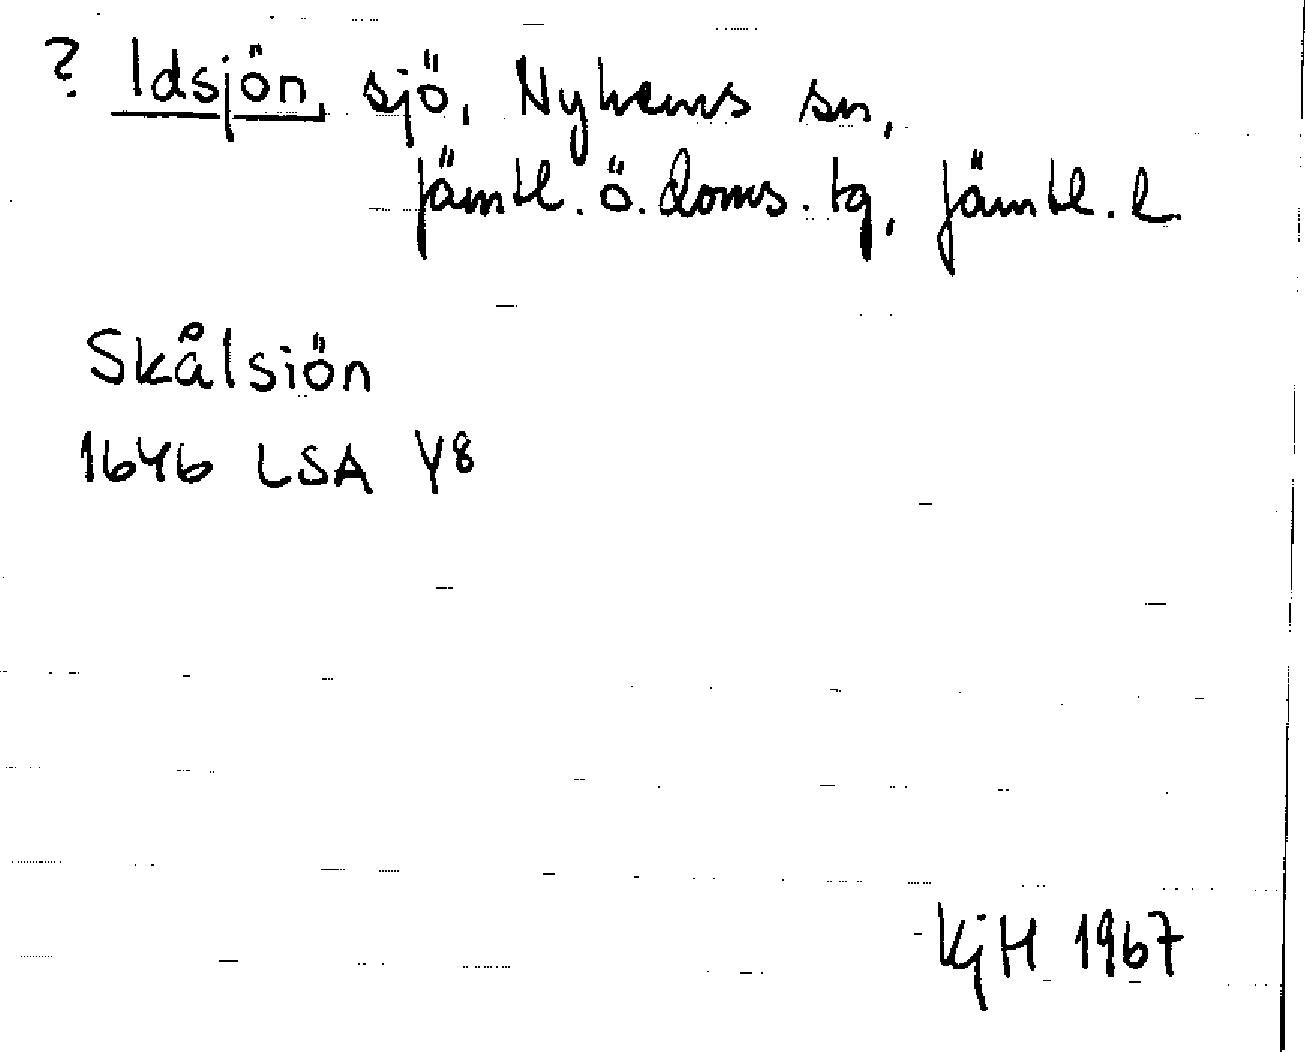 ? Idsjön, sjö, Nyhems sn,
Jämtl. ö. doms. tg, Jämtl. l
Skålsiön
1646 LSA Y8
KjH 1967